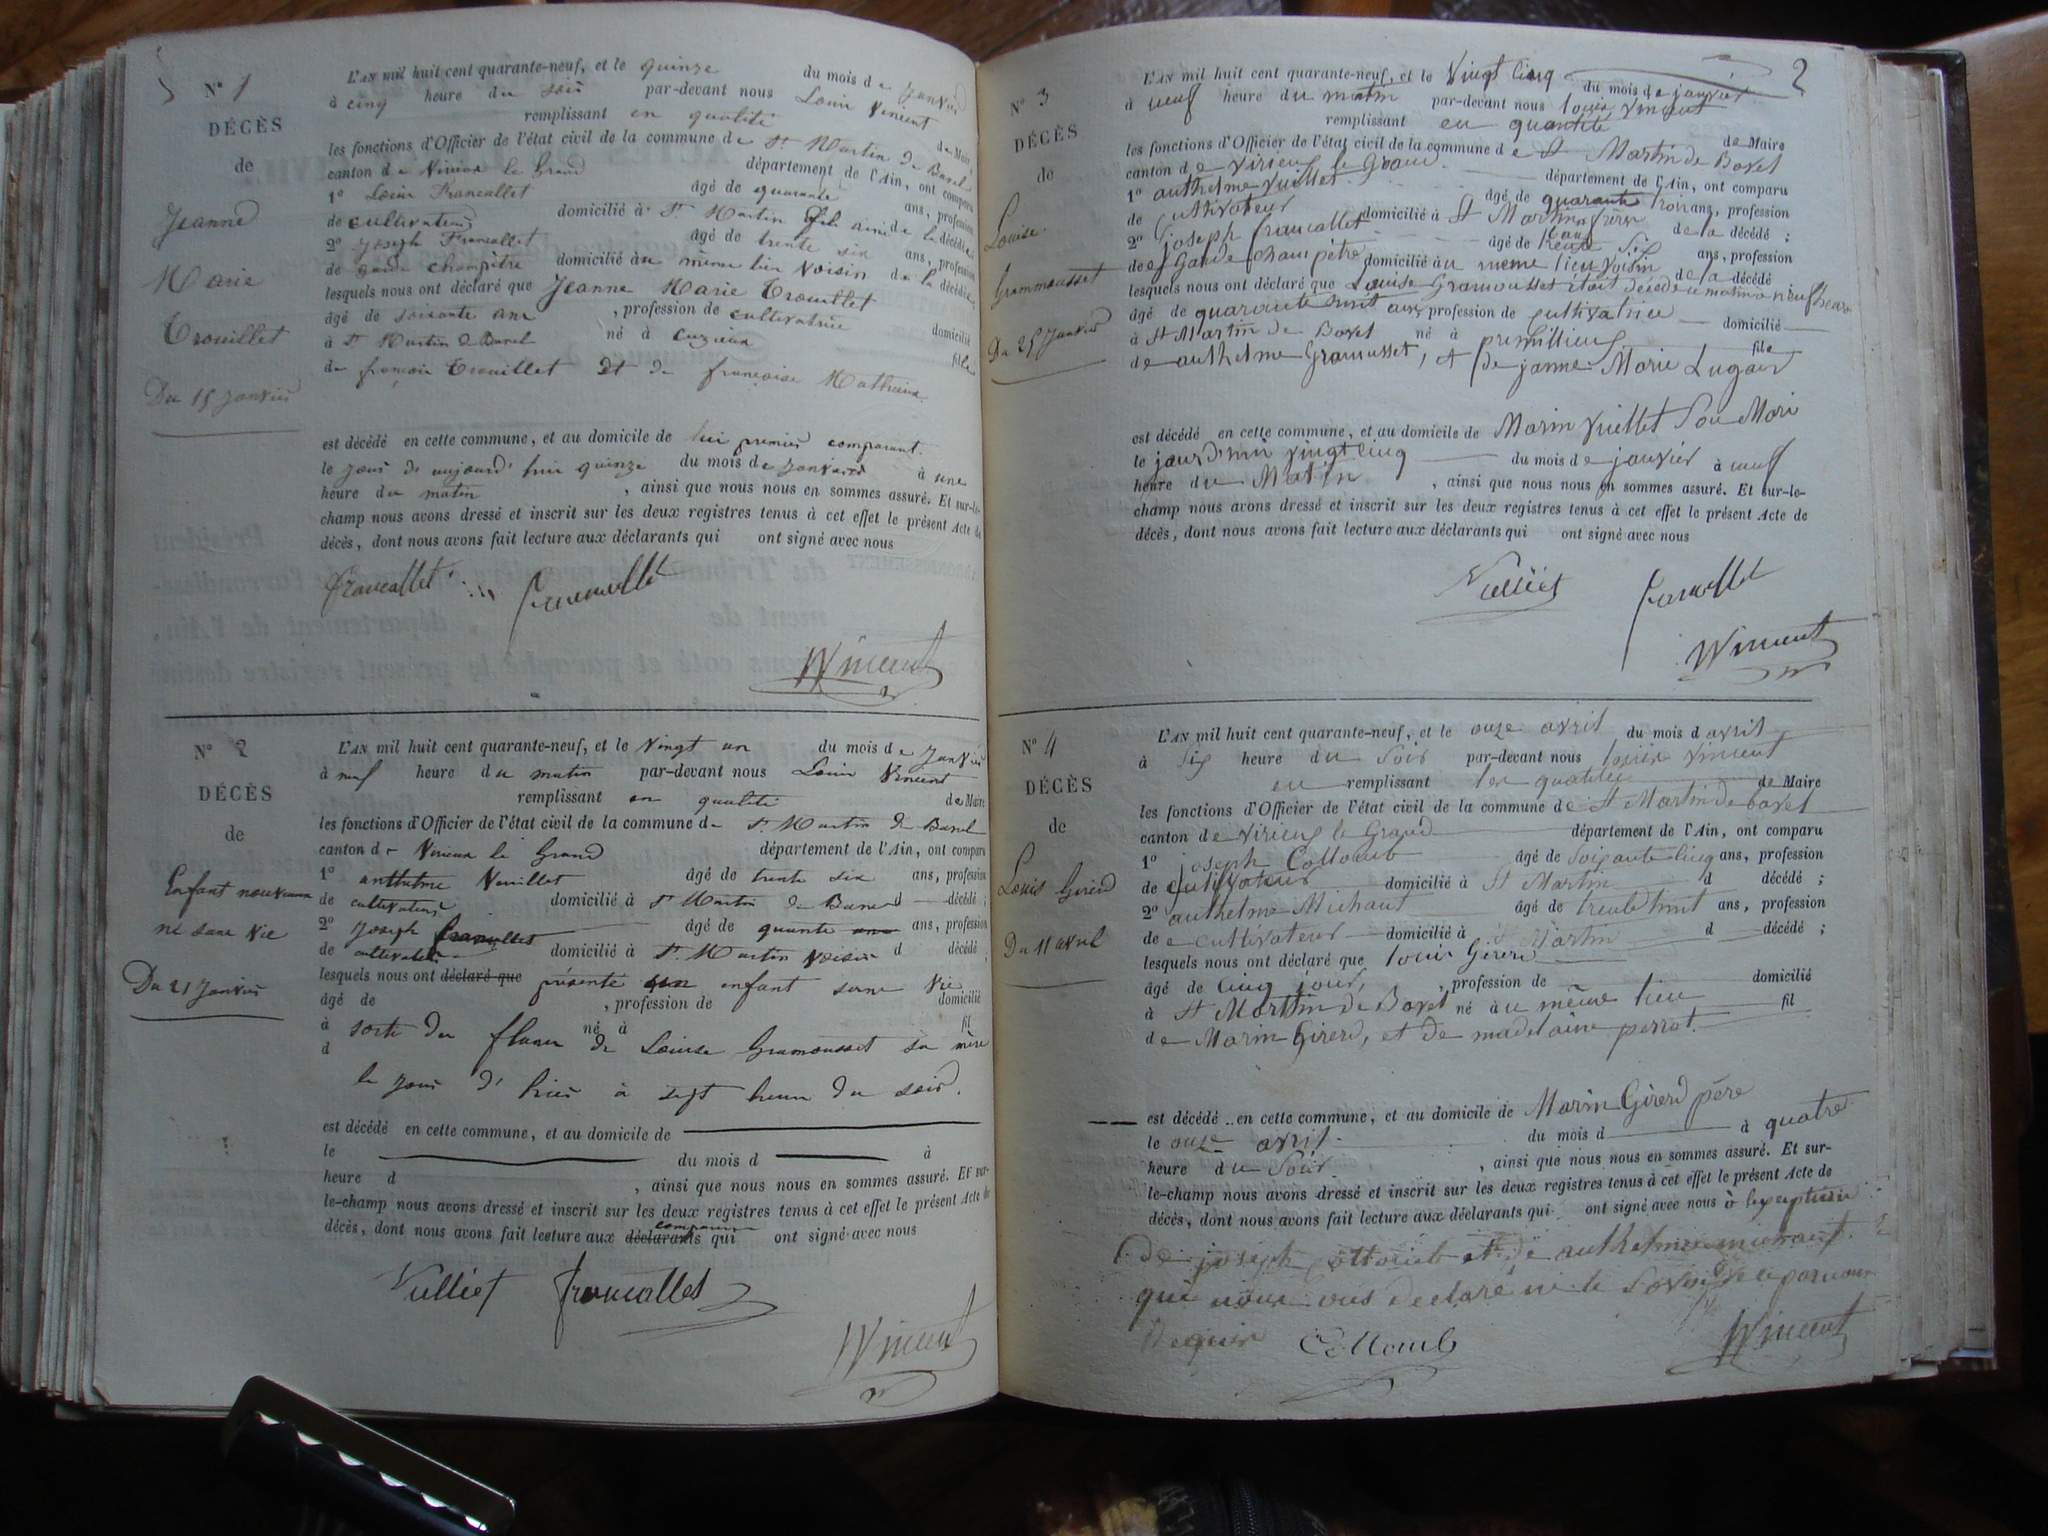 N° 1
DÉCÈS
de
Jeanne
Marie
Trouillet
Du 15 Janvier
L'AN mil huit cent quarante-neuf, et le quinze du mois de Janvier
à cinq heure du soir par-devant nous Louis Vincent
remplissant en qualité de Maire
les fonctions d'Officier de l'état civil de la commune de St Martin de Bavel
canton de Virieux le Grand département de l'Ain, ont comparu
1° Louis Francallet âgé de quarante ans, profession
de cultivateur domicilié à St Martin fils ainé de la décédée
2° Joseph Francallet âgé de trente six ans, profession
de garde champêtre domicilié au même lieu Voisin de la décédée
lesquels nous ont déclaré que Jeanne Marie Trouillet
âgé de soixante ans, profession de cultivatrice domicilié
à St Martin de Bavel né à Cuzieux fille
de françois Trouillet et de françoise Mathieux
est décédé en cette commune, et au domicile de lui premier comparant.
le jour d'aujourd'hui quinze du mois de janvier à une
heure du matin, ainsi que nous nous en sommes assuré. Et sur-le-
champ nous avons dressé et inscrit sur les deux registres tenus à cet effet le présent Acte de
décès, dont nous avons fait lecture aux déclarants qui ont signé avec nous
francallet francallet
Vincent
N° 2
DÉCÈS
de
Enfant nouveau
né sans vie
Du 21 Janvier
L'AN mil huit cent quarante-neuf, et le vingt un du mois de Janvier
à neuf heure du matin par-devant nous Louis Vincent
remplissant en qualité de Maire
les fonctions d'Officier de l'état civil de la commune de St Martin de Bavel
canton de Virieux le Grand département de l'Ain, ont comparu
1° anthelme Veuillet âgé de trente six ans, profession
de cultivateur domicilié à St Martin de Bavel d décédé ;
2° Joseph francallet âgé de quarante ans, profession
de cultivateur domicilié à St Martin Voisin d décédé ;
lesquels nous ont déclaré que présenté un enfant sans vie
âgé de , profession de domicilié
à sorti du flanc né à de Louise Gramousset sa mère fil
d
le jour d'hier à sept heure du soir.
est décédé en cette commune, et au domicile de
le du mois d à
heure d , ainsi que nous nous en sommes assuré. Et sur-
le-champ nous avons dressé et inscrit sur les deux registres tenus à cet effet le présent Acte de
décès, dont nous avons fait lecture aux déclarants comparants qui ont signé avec nous
Vulliet francallet
Vincent
2
N° 3
DÉCÈS
de
Louise
Grammousset
Du 25 Janvier
L'AN mil huit cent quarante-neuf, et le Vingt Cinq du mois de janvier
à neuf heure du matin par-devant nous louis vincent
remplissant en quantité de Maire
les fonctions d'Officier de l'état civil de la commune de St Martin de Bavel
canton de Virieux le Grand département de l'Ain, ont comparu
1° anthelme Vuillet âgé de quarante trois ans, profession
de Cultivateur domicilié à St Martin frère de la décédé ;
2° joseph francallet âgé de trente six ans, profession
de Garde Champêtre domicilié au meme lieu voisin de la décédé
lesquels nous ont déclaré que Louise Gramousset étoit décédé ce matin à neuf heure
âgé de quarante huit ans, profession de cultivatrice domicilié
à St Martin de Bavel né à premillieu fille
de anthelme Gramusset, et de janne Marie Lugand
est décédé en cette commune, et au domicile de Marin Vuillet Son Mari
le jour d'hui vingt cinq du mois de janvier à neuf
heure du Matin, ainsi que nous nous en sommes assuré. Et sur-le-
champ nous avons dressé et inscrit sur les deux registres tenus à cet effet le présent Acte de
décès, dont nous avons fait lecture aux déclarants qui ont signé avec nous
Vulliet francallet
Vincent
N° 4
DÉCÈS
de
Louis Girerd
Du 11 avril
L'AN mil huit cent quarante-neuf, et le onze avril du mois d avril
à Six heure du Soir par-devant nous louis vincent
en remplissant les qualité de Maire
les fonctions d'Officier de l'état civil de la commune de St Martin de Bavel
canton de Virieux le Grand département de l'Ain, ont comparu
1° joseph Collomb âgé de Soixante-Cinq ans, profession
de Cultivateur domicilié à St Martin d décédé ;
2° anthelme Michaut âgé de trente huit ans, profession
de cultivateur domicilié à St Martin d décédé ;
lesquels nous ont déclaré que louis Girerd
âgé de cinq jour, , profession de domicilié
à St Martin de Bavel né au même lieu fil
de Marin Girerd, et de madelaine perrot.
est décédé en cette commune, et au domicile de Marin Girerd père
le onze avril du mois d à quatre
heure du Soir , ainsi que nous nous en sommes assuré. Et sur-
le-champ nous avons dressé et inscrit sur les deux registres tenus à cet effet le présent Acte de
décès, dont nous avons fait lecture aux déclarants qui ont signé avec nous à l'exception
de joseph Collomb et de anthelme michaut.
qui nous ont déclaré ne le Savoir
requis Collomb
Vincent